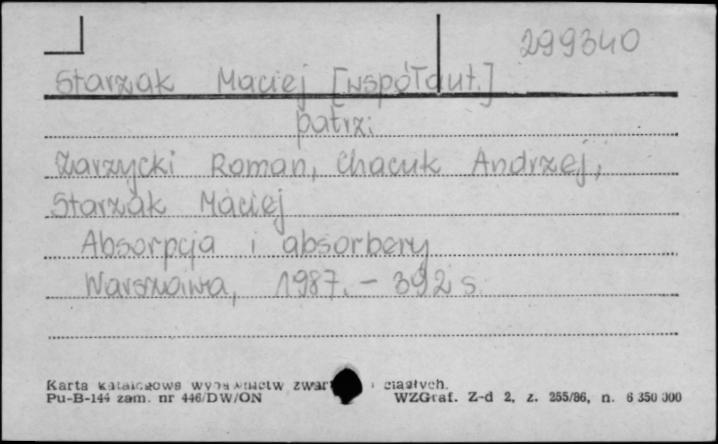 299340
Starzak Maciej [współaut.]
patrz:
Zarzycki Roman, Chacuk Andrzej,
Starzak Maciej
Absorpcja i absorbery
Warszawa, 1987. – 392 s.
Karta katalogowa wydawnictw zwar i ciągłych.
Pu-B-144 zam. nr 446/DW/ON WZGraf. Z-d 2, z. 255/86, n. 6 350 000